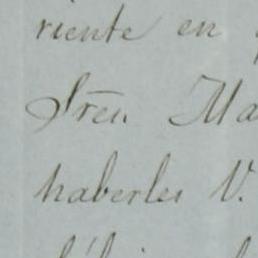 riente en
Srēs. Ma
haberles V.